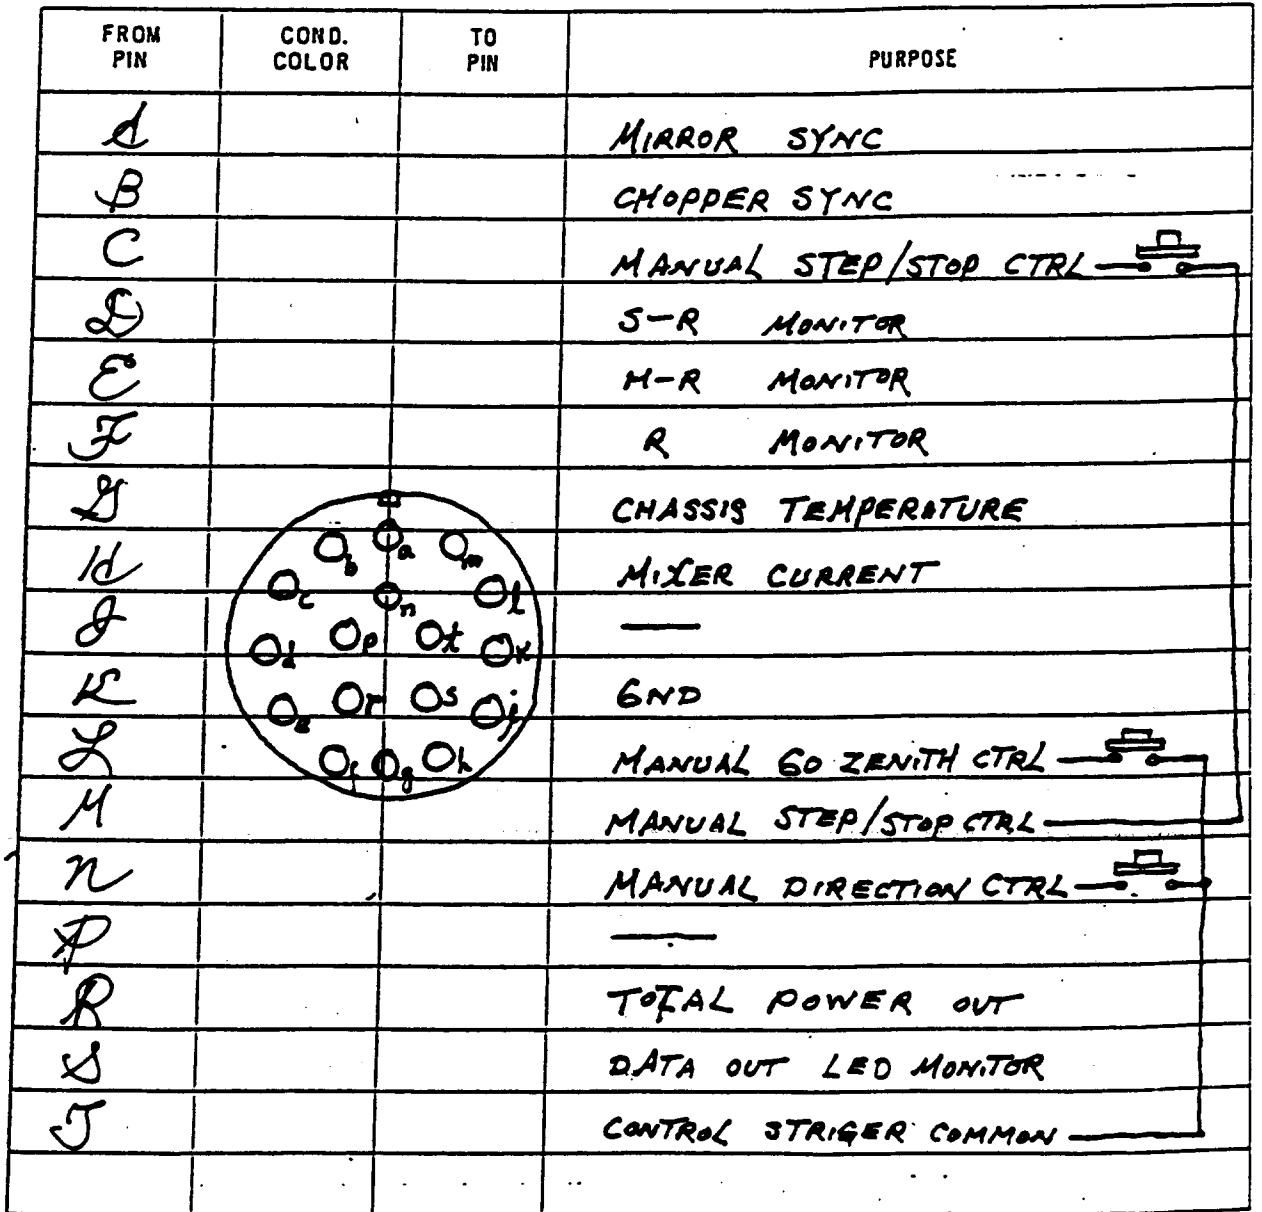 FROM PIN COND. COLOR TO PIN PURPOSE
A MIRROR SYNC
B CHOPPER SYNC
C MANUAL STEP/STOP CTRL
D S-R MONITOR
E M-R MONITOR
F R MONITOR
G CHASSIS TEMPERATURE
H MIXER CURRENT
J —
K GND
L MANUAL GO ZENITH CTRL
M MANUAL STEP/STOP CTRL
N MANUAL DIRECTION CTRL
P —
R TOTAL POWER OUT
S DATA OUT LED MONITOR
T CONTROL STRIGER COMMON
b a m
c n l
d p t k
e r s j
f g h